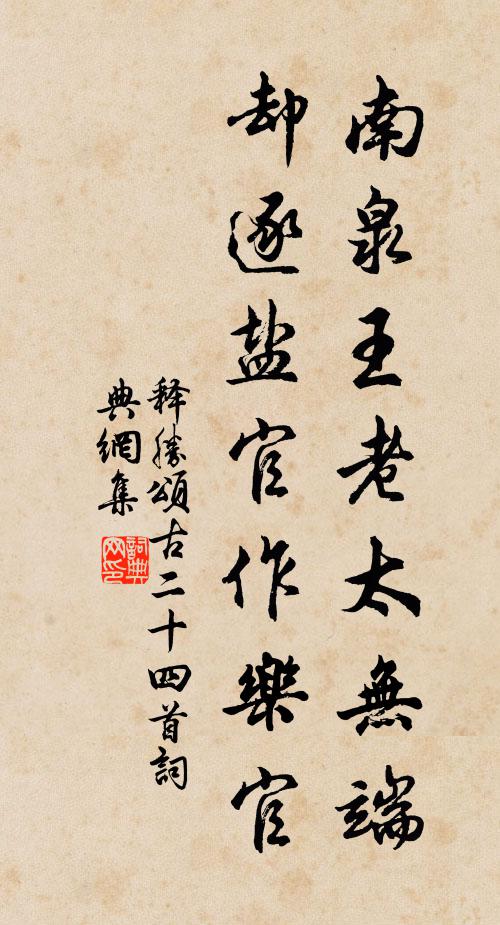 南泉王老太無端
却逐盐官作樂官
释勝頌古二十四首詞
典網集
詞典網印